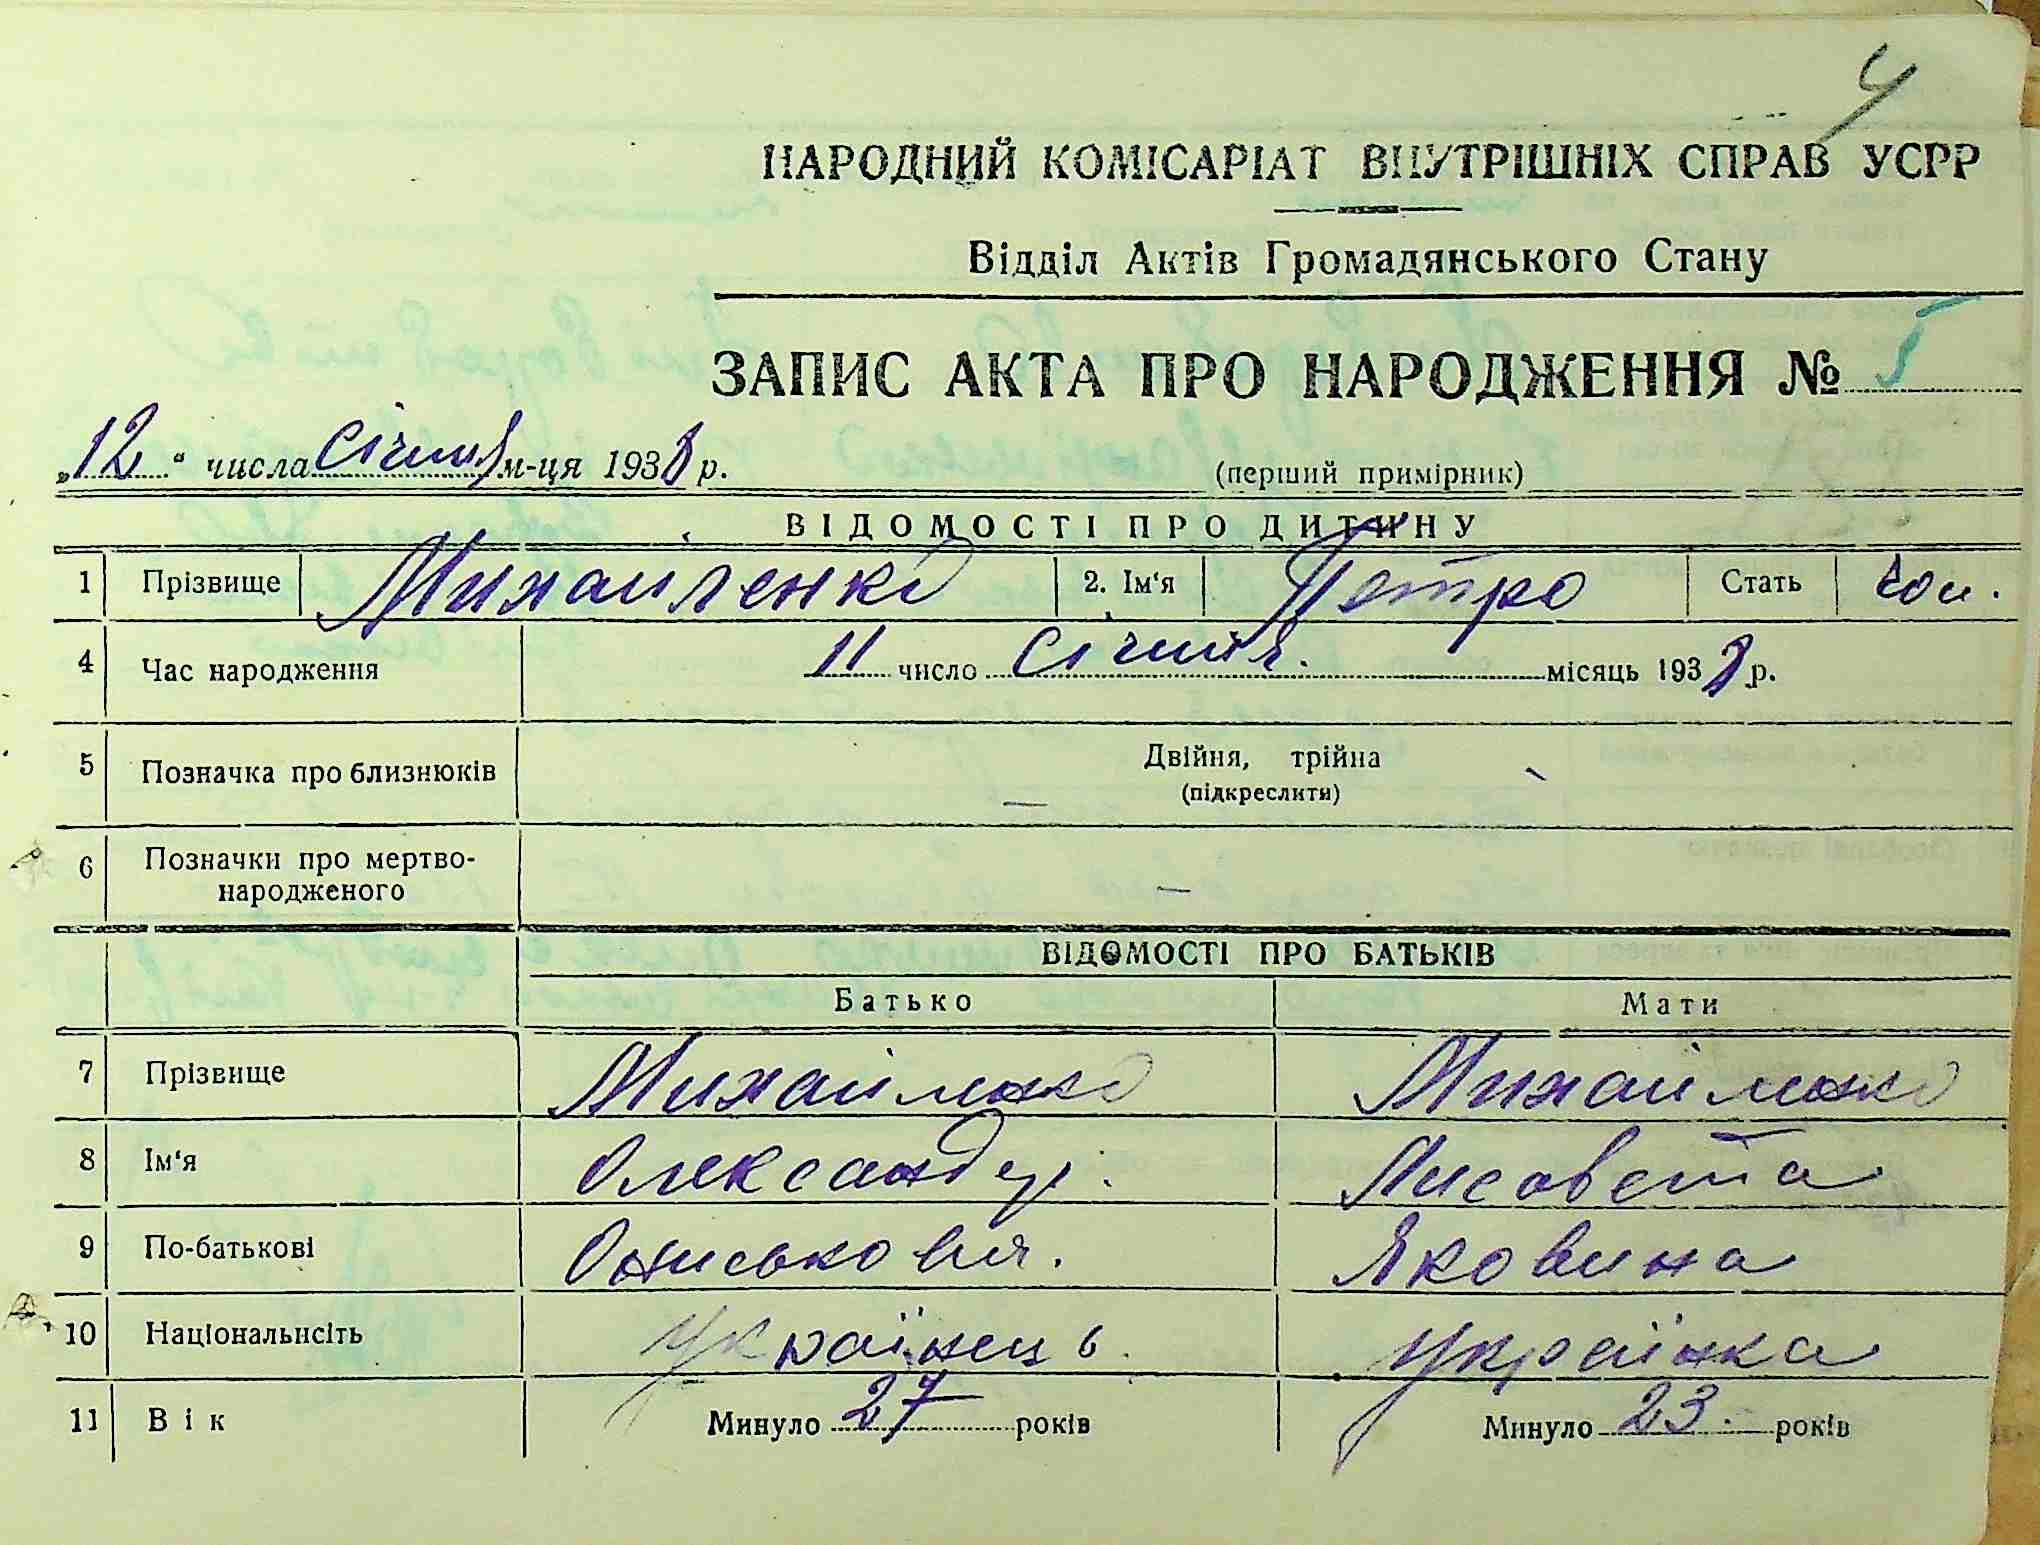 4
НАРОДНИЙ КОМІСАРІАТ ВНУТРІШНІХ СПРАВ УСРР
Відділ Актів Громадянського Стану
ЗАПИС АКТА ПРО НАРОДЖЕННЯ № 5
„12“ числа січня м-ця 1938 р. (перший примірник)
ВІДОМОСТІ ПРО ДИТИНУ
1 Прізвище Михайленко 2. Ім‘я Петро Стать чол.
4 Час народження 11 число січня місяць 1938 р.
5 Позначка про близнюків Двійня, трійна
(підкреслити) —
6 Позначки про мертво-
народженого —
ВІДОМОСТІ ПРО БАТЬКІВ
Батько Мати
7 Прізвище Михайленко Михайленко
8 Ім‘я Олександр. Лисавета
9 По-батькові Ониськович. Яковина
10 Національнсіть Українець. Українка
11 Вік Минуло 27 років Минуло 23. років